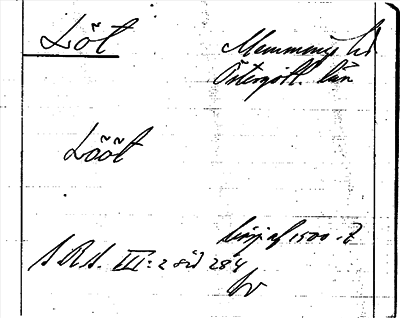 Löt
Memmings hd
Östergötl. län
Lööt
börj. af 1500-t
S.R.S. III: 2 sid 284